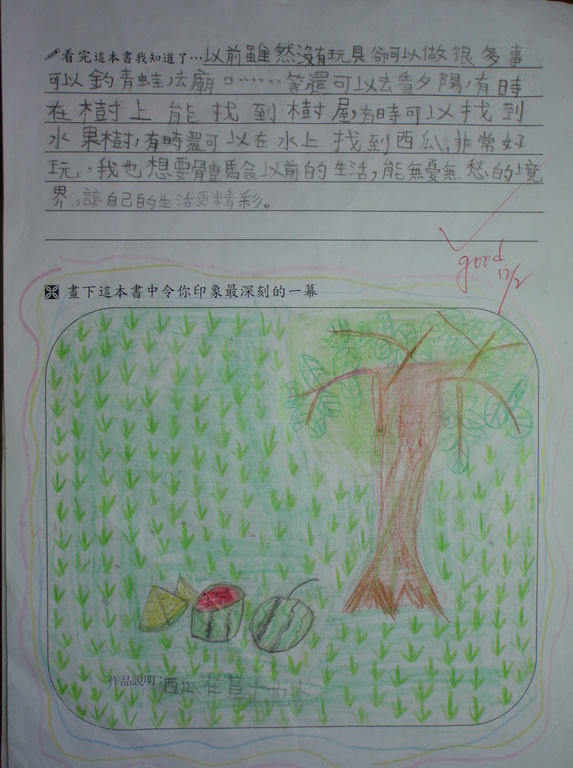 看完這本書我知道了…以前雖然沒有玩具卻可以做很多事
可以釣青蛙,去廟口……等還可以去看夕陽,有時
在樹上能找到樹屋,有時可以找到
水果樹,有時還可以在水上找到西瓜,非常好
玩,我也想要體驗以前的生活,能無憂無愁的境
界,讓自己的生活更精彩。
good
12/2
畫下這本書中令你印象最深刻的一幕
作品說明:西瓜在草